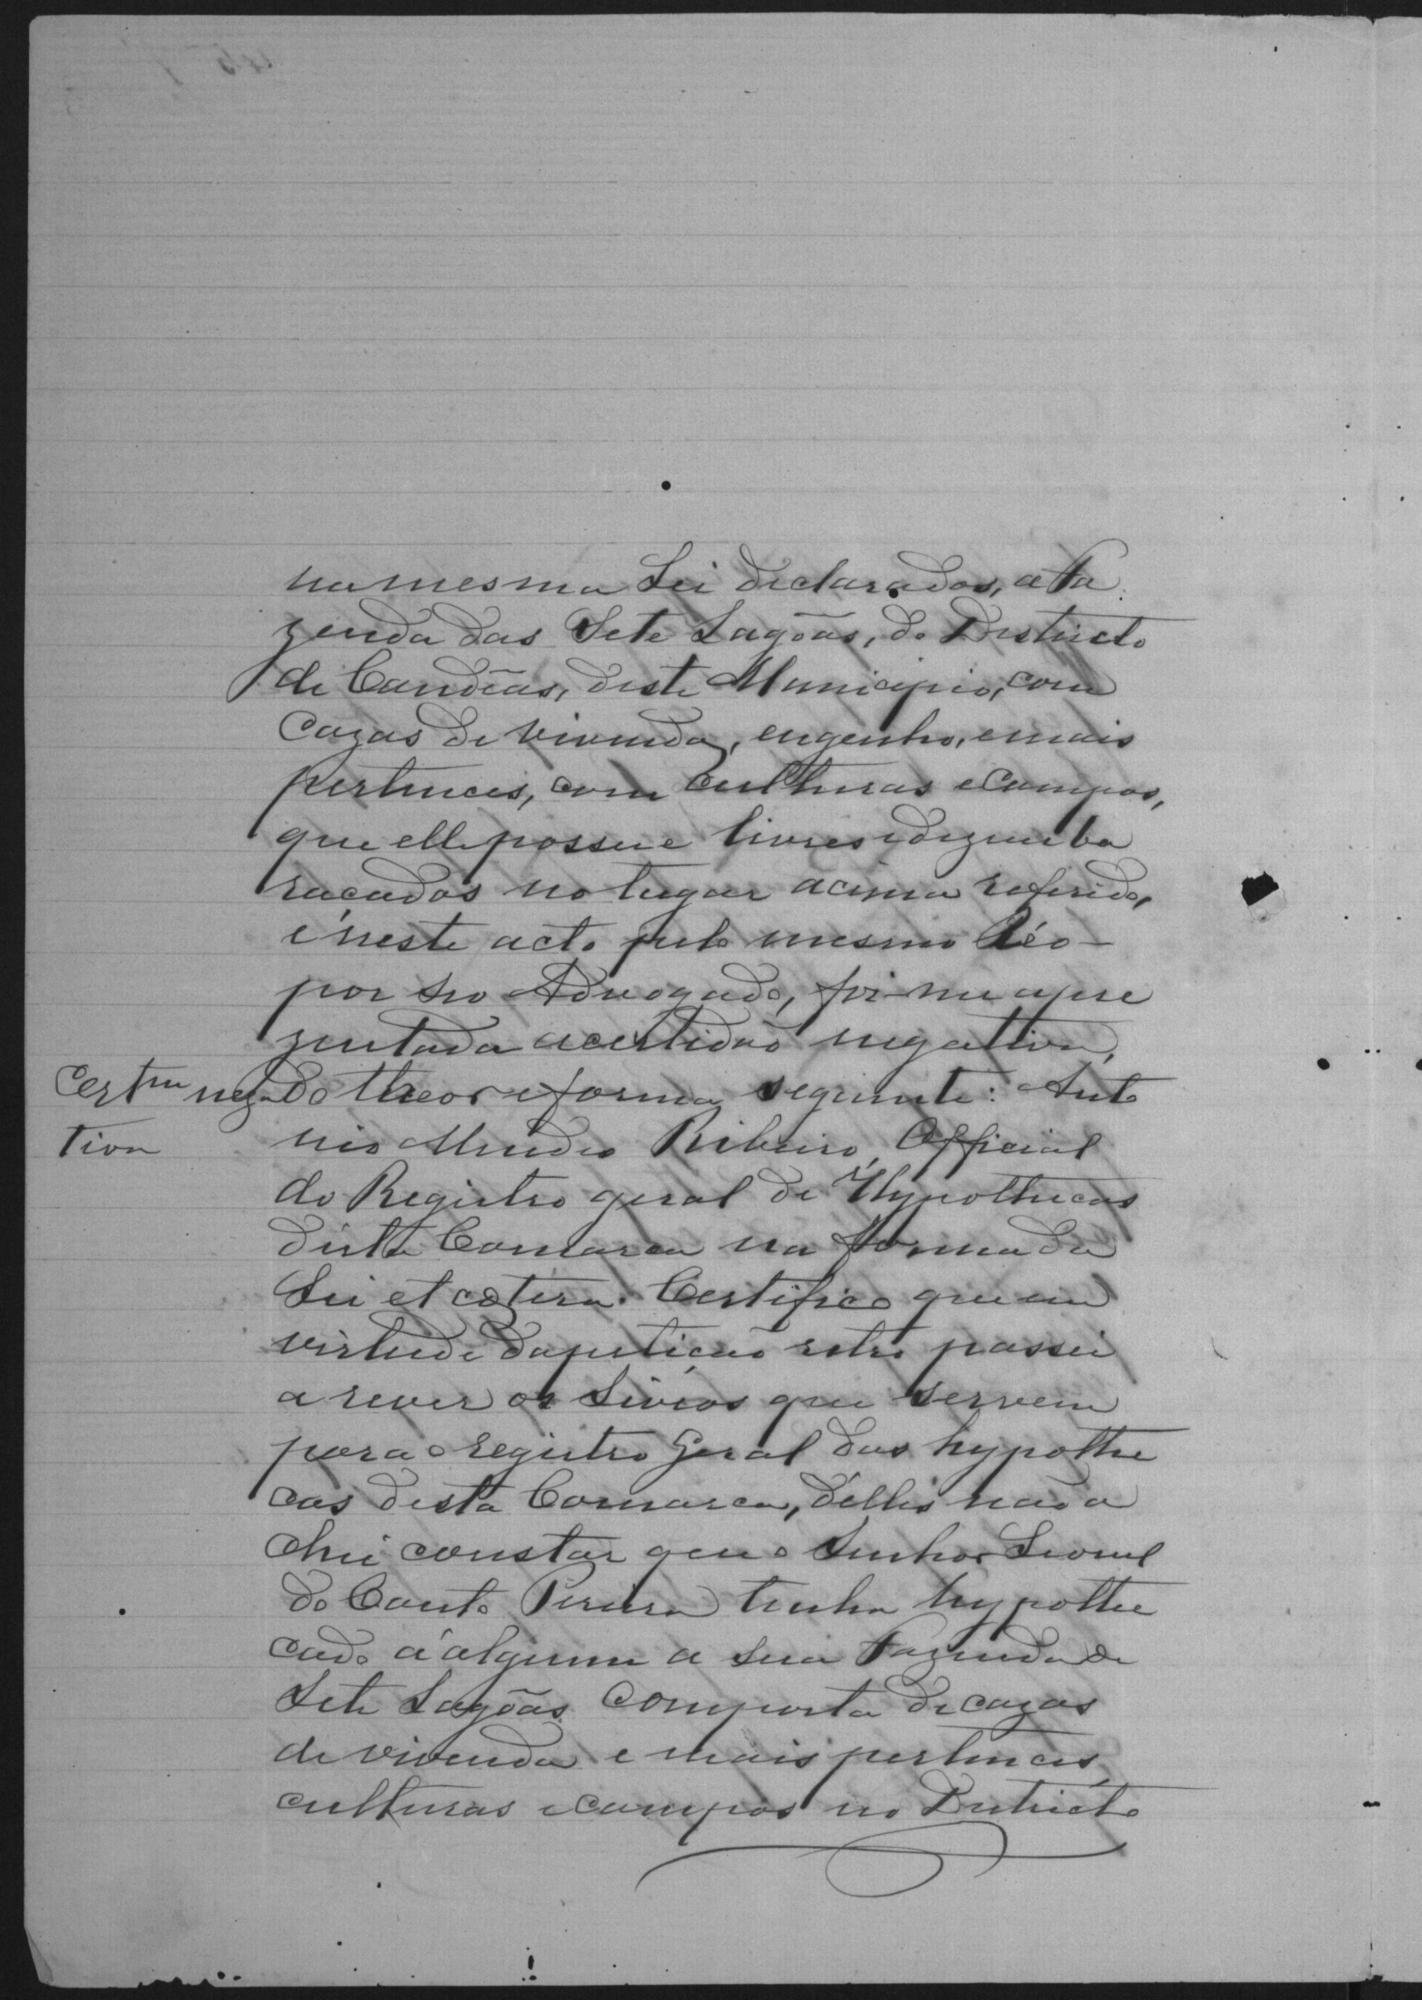 na mesma Lei declarados, a Fa
zenda das Sete Lagôas, do Districto
de Candêas, deste Municipio, com
cazas de vivenda, engenho, e mais
pertences, com culturas e campos,
que elle possue livres e dezemba
racados no lugar acima referido,
e neste acto pelo mesmo Réo
por seo Advogado, foi-me apre
zentada a certidão negativa,
Certam nega
do theor e forma seguinte: Anto
tiva
nio Mendes Ribeiro, Official
do Registro geral de Hypothecas
desta Comarca na forma da
Lei et cætera. Certifico que em
virtude da petição retro passei
a rever os Livros que servem
para o registro Geral das hypothe
cas desta Comarca, d'elles nada
chei constar que o Senhor Leonel
do Couto Pereira tenha hypothe
cado á alguem a sua Fazenda de
Sete Lagôas composta de cazas
de vivenda e mais pertences,
culturas e campos no Districto